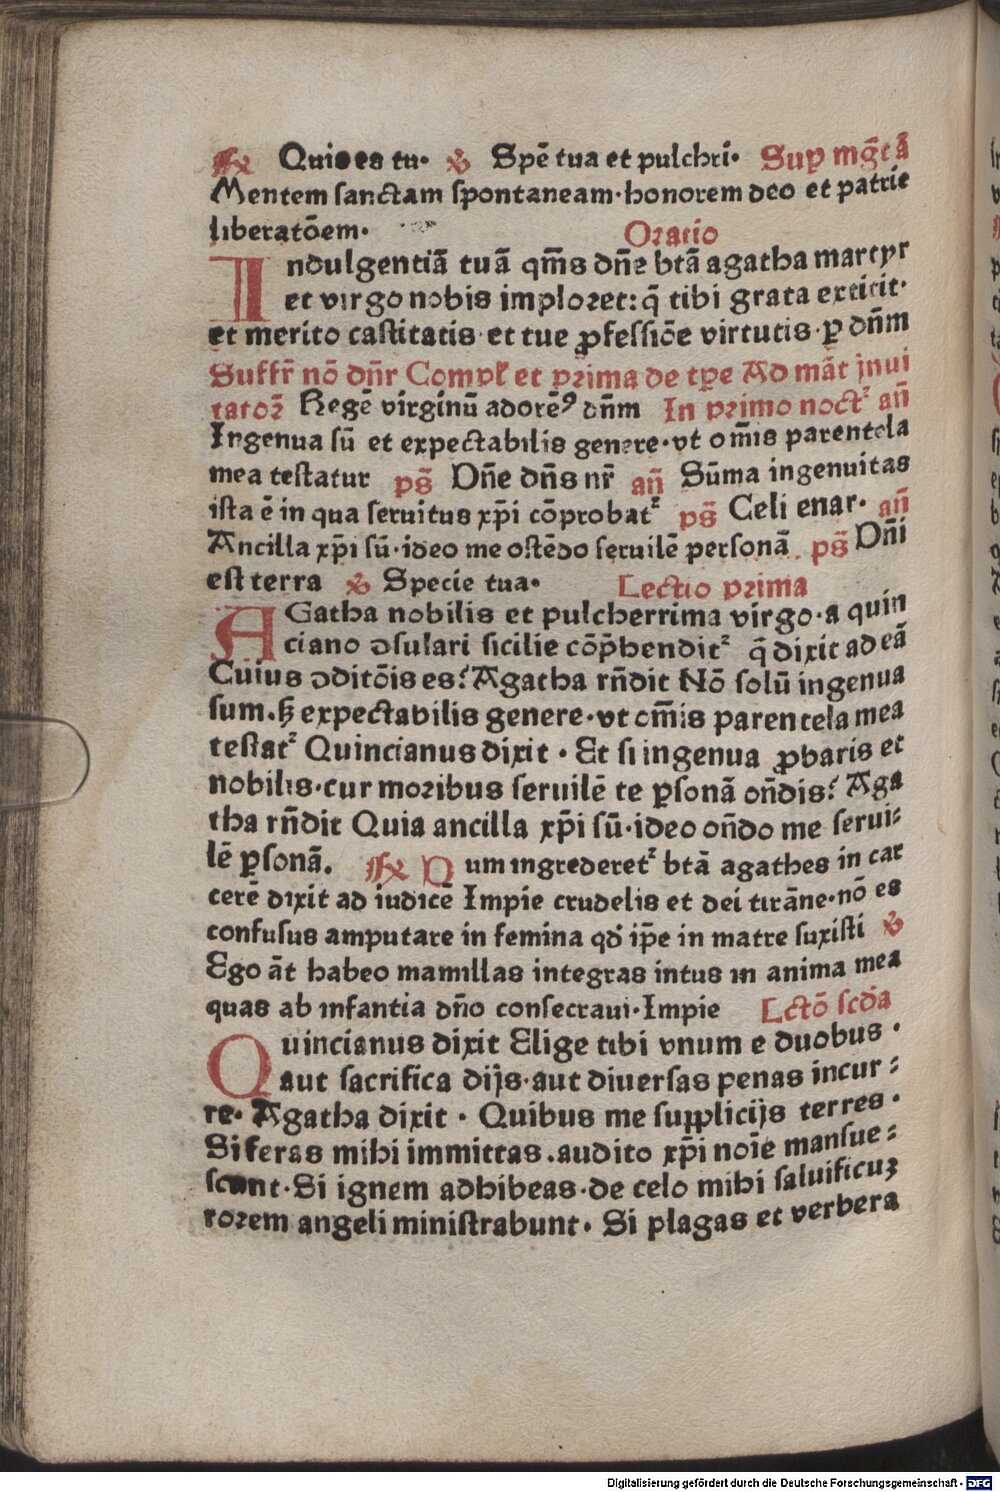 ℟ Quis es tu· ℣ Spē tua et pulchri· Sup mg̅tā
Mentem sanctam spontaneam·honorem deo et patrie
liberatōem· Oratio
INdulgentiā tuā qm̅s dn̅e btā agatha martyr
et virgo nobis imploret: q̄ tibi grata extitit·
et merito castitatis·et tue ꝓfessiōe virtutis·ꝑ dn̅m
Suffr̄ nō dn̅r Compl̛ et prima de tꝑe Ad māt inui
tator̛ Regē virginū adorēꝰ dn̅m In primo noctᷣ an̅
Ingenua sū et expectabilis genere·vt om̅is parentela
mea testatur ps̄ Dn̅e dn̅s nr̄ an̅ Sūma ingenuitas
ista ē in qua seruitus xp̅i cōprobatᷣ ps̄ Celi enar· an̅
Ancilla xp̅i sū·ideo me ostēdo seruilē personā ps̄ Dn̅i
est terra ℣ Specie tua· Lectio prima
AGatha nobilis et pulcherrima virgo·a quin
ciano ꝯsulari sicilie cōp̄henditᷣ q̄ dixit ad eā
Cuius ꝯditōis es? Agatha rn̅dit Nō solū ingenua
sum·ꜩ expectabilis genere·vt om̅is parentela mea
testatᷣ Quincianus dixit · Et si ingenua ꝓbaris et
nobilis·cur moribus seruilē te ꝑsonā on̅dis? Aga
tha rn̅dit Quia ancilla xp̅i sū·ideo on̅do me serui⸗
lē ꝑsonā. ℟ Dum ingrederetᷣ btā agathes in car
cerē dixit ad iudicē Impie crudelis et dei tirāne·nō es
confusus amputare in femina qd̛ ip̅e in matre suxisti ℣
Ego āt habeo mamillas integras intus in anima mea
quas ab infantia dn̅o consecraui·Impie Lctō scd̅a
Quincianus dixit Elige tibi vnum e duobus ·
aut sacrifica dijs·aut diuersas penas incur⸗
re· Agatha dixit · Quibus me supplicijs terres ·
Si feras mihi immittas·audito xp̅i noīe mansue⸗
scunt·Si ignem adhibeas·de celo mihi saluificuꝫ
rorem angeli ministrabunt· Si plagas et verbera
Digitalisierung gefördert durch die Deutsche Forschungsgemeinschaft - DFG